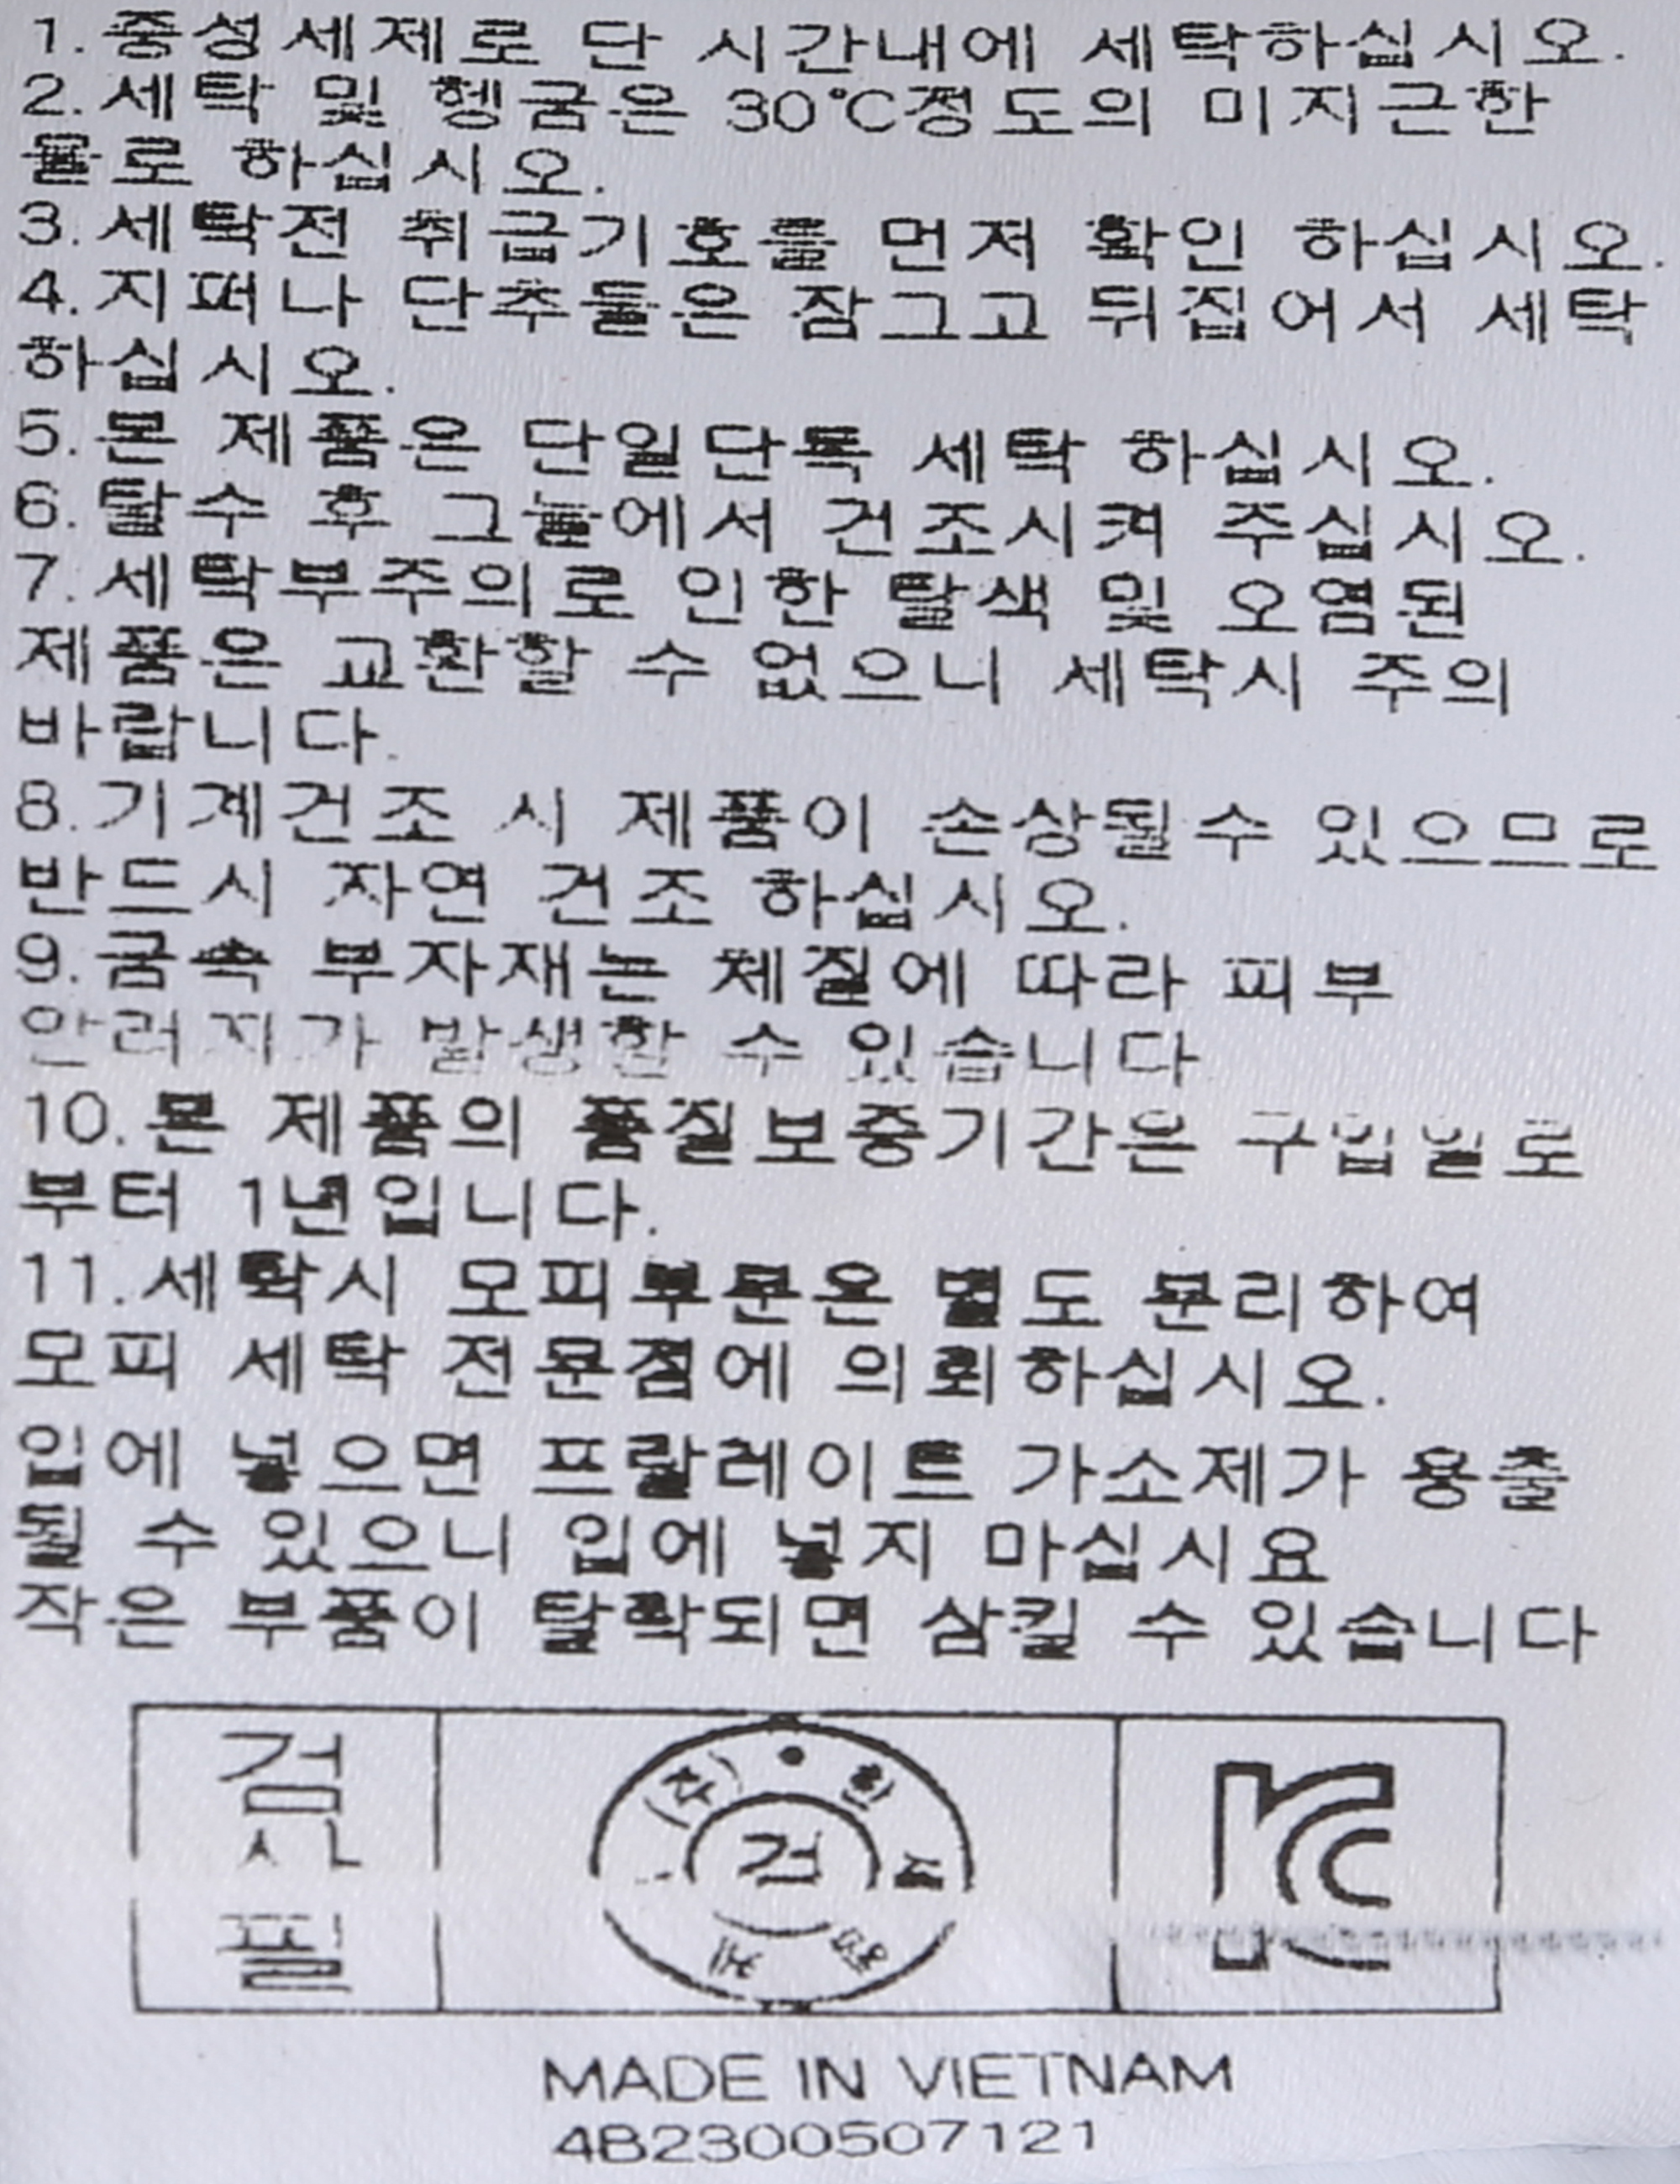 1.중성세제로 단 시간내에 세탁하십시오.
2.세탁 및 헹굼은 30℃정도의 미지근한
물로 하십시오.
3.세탁전 취급기호를 먼저 확인 하십시오.
4.지퍼나 단추들은 잠그고 뒤집어서 세탁
하십시오.
5.본 제품은 단일단독 세탁 하십시오.
6.탈수 후 그늘에서 건조시켜 주십시오.
7.세탁부주의로 인한 탈색 및 오염된
제품은 교환할 수 없으니 세탁시 주의
바랍니다.
8.기계건조 시 제품이 손상될수 있으므로
반드시 자연 건조 하십시오.
9.금속 부자재는 체질에 따라 피부
알러지가 발생할 수 있습니다
10.본 제품의 품질보증기간은 구입일로
부터 1년입니다.
11.세탁시 모피부분은 별도 분리하여
모피 세탁 전문점에 의뢰하십시오.
입에 넣으면 프탈레이트 가소제가 용출
될 수 있으니 입에 넣지 마십시요
작은 부품이 탈락되면 삼킬 수 있습니다
검
사
필
검
MADE IN VIETNAM
4B2300507121